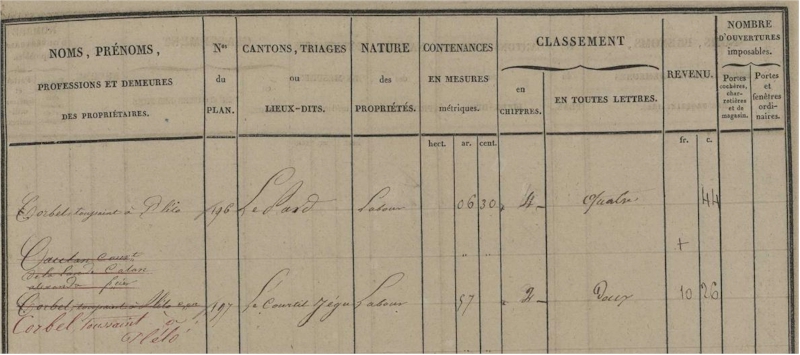 NOMS, PRÉNOMS,
PROFESSIONS ET DEMEURES
DES PROPRIÉTAIRES.
Nos
du
PLAN.
CANTONS, TRIAGES
ou
LIEUX-DITS.
NATURE
des
PROPRIÉTÉS.
CONTENANCES
EN MESURES
métriques.
hect. ar. cent.
CLASSEMENT
en
CHIFFRES.
EN TOUTES LETTRES.
REVENU.
fr. c.
NOMBRE
D'OUVERTURES
imposables.
Portes
cochères,
charretières
et de
magasin.
Portes
et
fenêtres
ordinaires.
Corbel toussaint à Pléló 196 Le Labour 06 30 4 quatre 44
Corbel toussaint à 197 le Courtil Jégu Labour 57 2 Deux 10 26
Corbel toussaint à
Pléló